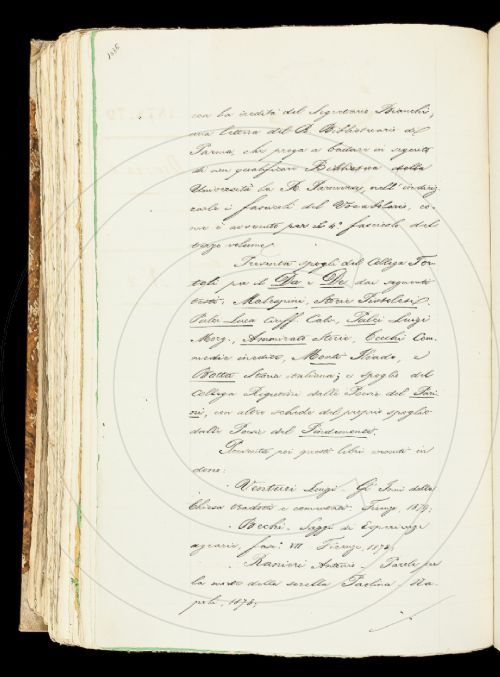 con la eredità del Segretario Bianchi,
una lettera del R. Bibliotecario di
Parma, che prega a badare in seguito
di non qualificare Biblioteca della
Università la R. Parmense, nell'indiriz-
zarle i fascicoli del Vocabolario, co-
me è avvenuto per il 4° fascicolo del
terzo volume.
Presenta spogli del Collega Tor-
toli per il Da e De dai seguenti
testi: Malispini, Storie Pistolesi,
Pulci Luca Ciriff. Calv., Pulci Luigi
Morg., Ammirato Storie, Cecchi Com-
medie inedite, Monti Iliade, e
Botta Storia italiana; e spogli del
Collega Rigutini dalle Poesie del Pari-
ni, con altre schede del proprio spoglio
dalle Poesie del Pindemonte.
Presenta poi questi libri venuti in
dono:
Venturi Luigi / Gl'Inni della
Chiesa tradotti e commentati. Firenze, 1879;
Becchi. Saggi di Esperienze
agrarie, fasc. VII Firenze, 1878;
Ranieri Antonio / Parole per
la morte della sorella Paolina / Na-
poli, 1878;